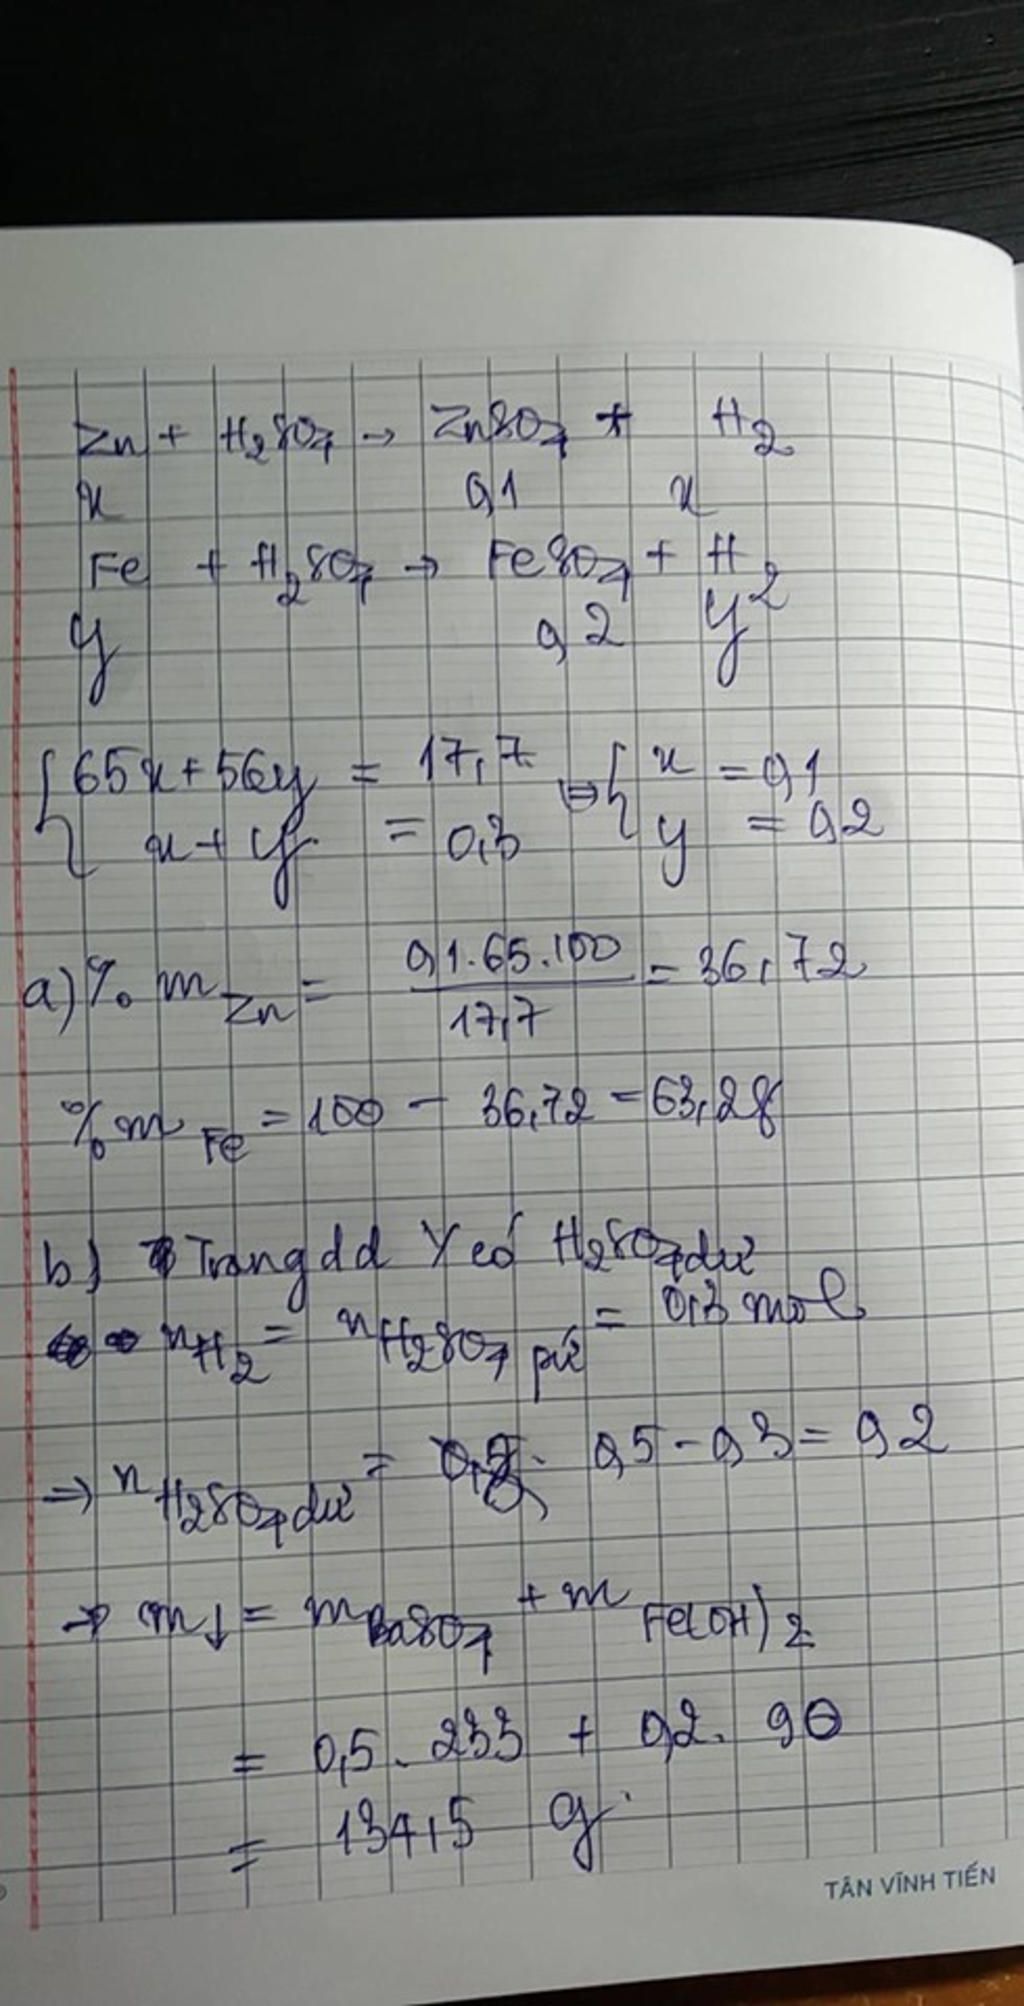 Zn + H2SO4 → ZnSO4 + H2
x 0,1 x
Fe + H2SO4 → FeSO4 + H2
y 0,2 y
{ 65x + 56y = 17,7 ⇔ { x = 0,1
x + y = 0,3 y = 0,2
a) % m Zn = 0,1.65.100 / 17,7 = 36,72
% m Fe = 100 - 36,72 = 63,28
b) Trong dd Y có H2SO4 dư
nH2 = nH2SO4 pứ = 0,3 mol
⇒ nH2SO4 dư = 0,5 - 0,3 = 0,2
→ m↓ = mBaSO4 + mFe(OH)2
= 0,5. 233 + 0,2. 90
= 134,5 g
TÂN VĨNH TIẾN